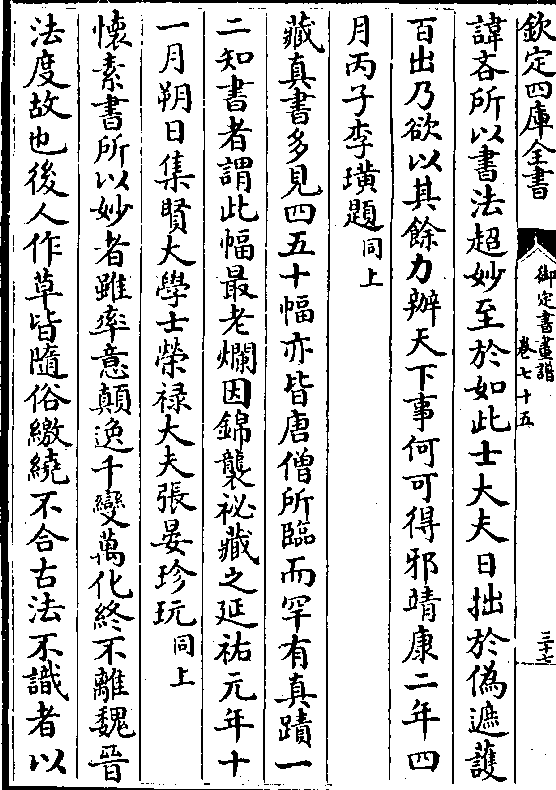 欽定四庫全書
御定書畫譜
卷七十五
三十七
諱吝所以書法超妙至於如此士大夫日拙於偽遮護
百出乃欲以其餘力辦天下事何可得邪靖康二年四
月丙子李璜題同上
藏真書多見四五十幅亦皆唐僧所臨而罕有真蹟一
二知書者謂此幅最老爛因錦襲祕藏之延祐元年十
一月朔日集賢大學士榮祿大夫張晏珍玩同上
懷素書所以妙者雖率意顛逸千變萬化終不離魏晉
法度故也後人作草皆隨俗繳繞不合古法不識者以